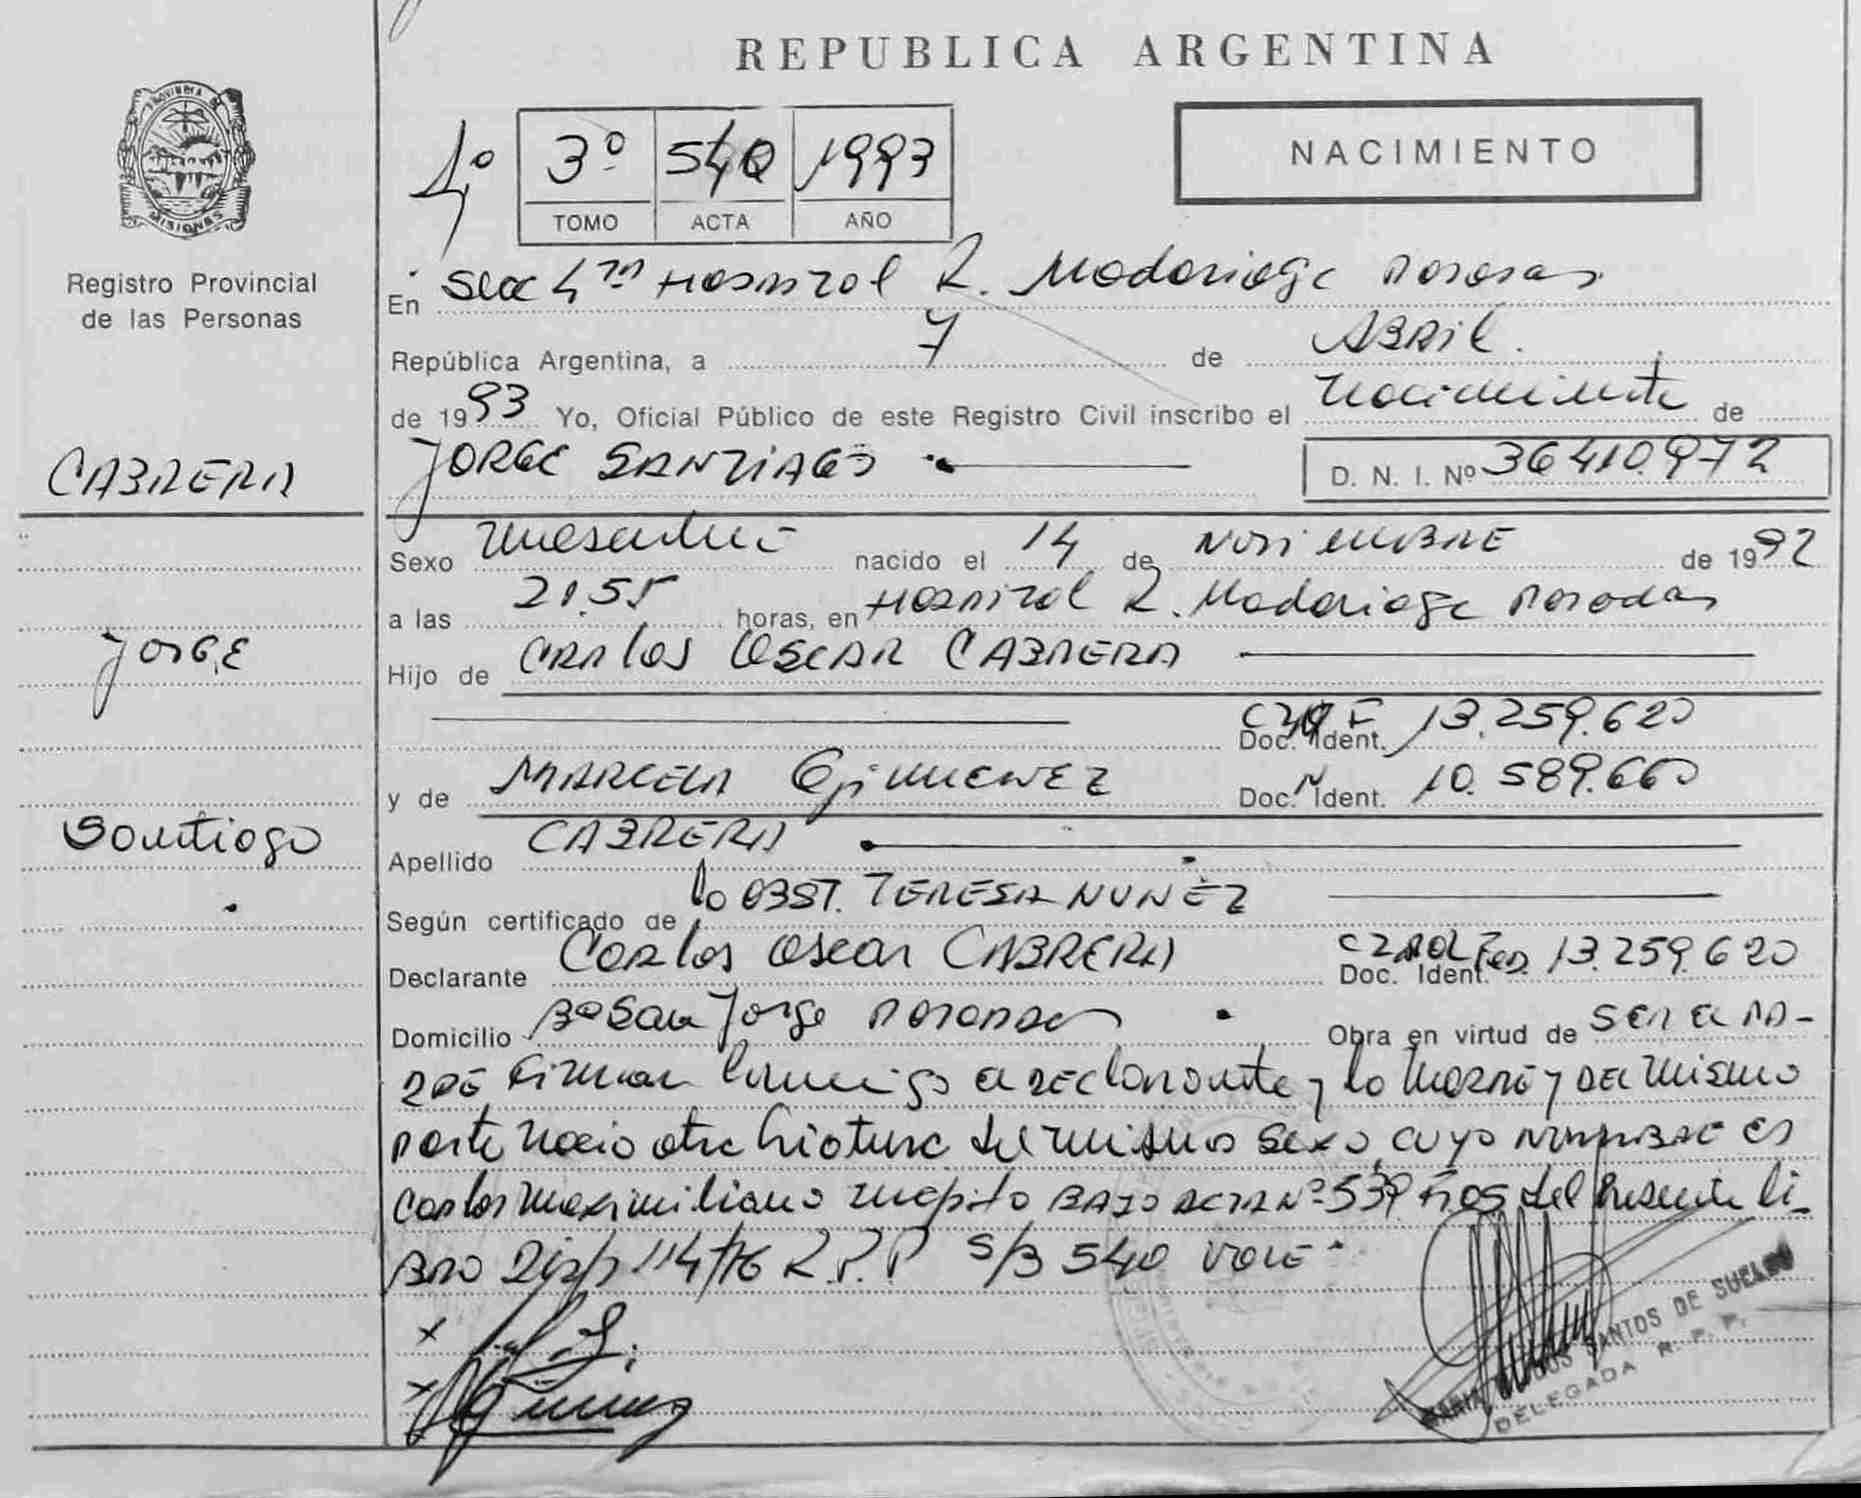 REPUBLICA ARGENTINA
PROVINCIA DE
MISIONES
Registro Provincial
de las Personas
4º 3º 540 1993
TOMO ACTA AÑO
NACIMIENTO
En Secc 4ta Hospital R. Madariaga Posadas
República Argentina, a 7 de ABRIL.
de 1993 Yo, Oficial Público de este Registro Civil inscribo el nacimiento de
JORGE SANTIAGO
D. N. I. Nº 36.410.972
CABRERA
Jorge
Santiago
Sexo masculino nacido el 14 de NOVIEMBRE de 1992
a las 21.55 horas, en Hospital R. Madariaga Posadas
Hijo de CARLOS OSCAR CABRERA
Doc. Ident. 13.259.620
y de MARCELA GIMENEZ Doc. Ident. 10.589.660
Apellido CABRERA
Según certificado de la OBST. TERESA NUÑEZ
Declarante Carlos Oscar CABRERA Doc. Ident. 13.259.620
Domicilio Bº San Jorge Posadas Obra en virtud de SER EL PA-
DRE Firman conmigo el declarante y la MADRE y DEL mismo
parto nacio otra criatura del mismo sexo cuyo NOMBRE es
Carlos Maximiliano inscripto BAJO ACTA Nº 539 del Presente li-
BRO Disp. 114/76 R.P.P S/B 540 VALE
SANTOS DE SUELDO
DELEGADA R. P. P.